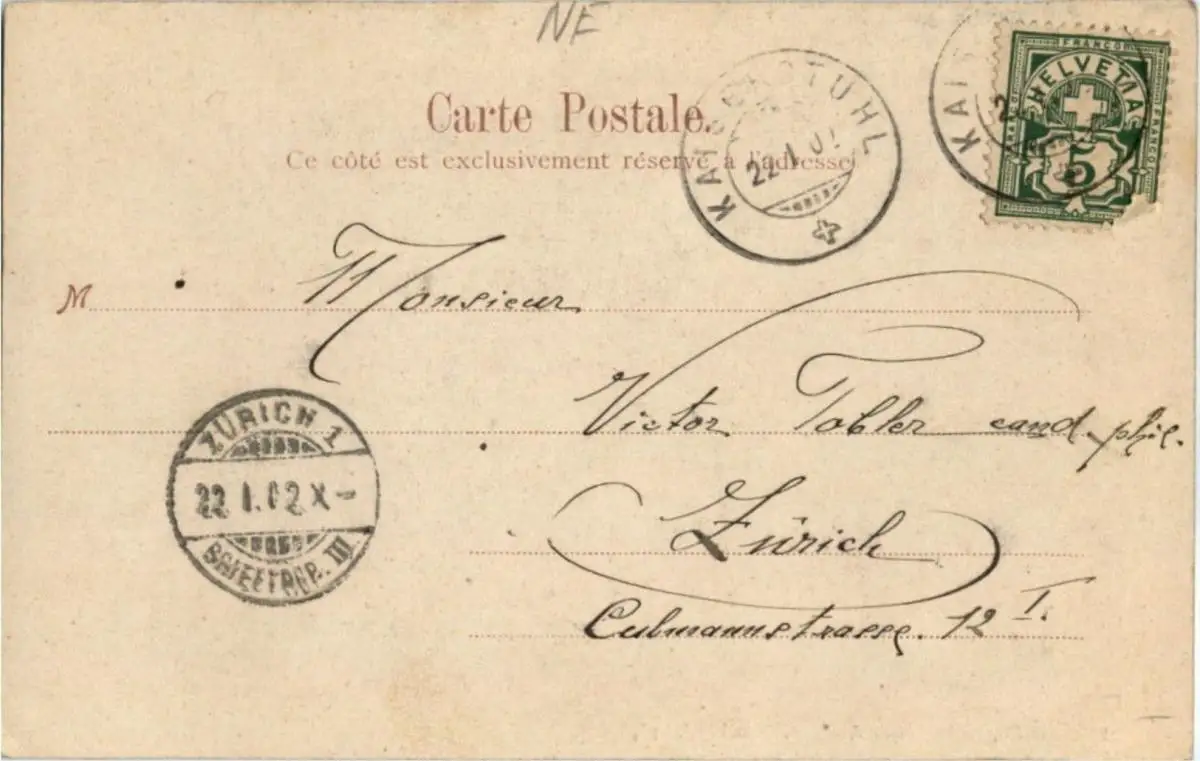 NE
Carte Postale.
Ce côté est exclusivement réservé à l'adresse
KAISERSTUHL
22 I 02
FRANCO
HELVETIA
5
M
Monsieur
Victor Tobler cand. phil.
Zürich
Culmannstrasse. 12 I.
ZÜRICH 1
22 I. 02 X–
BRIEFTRÄG. III